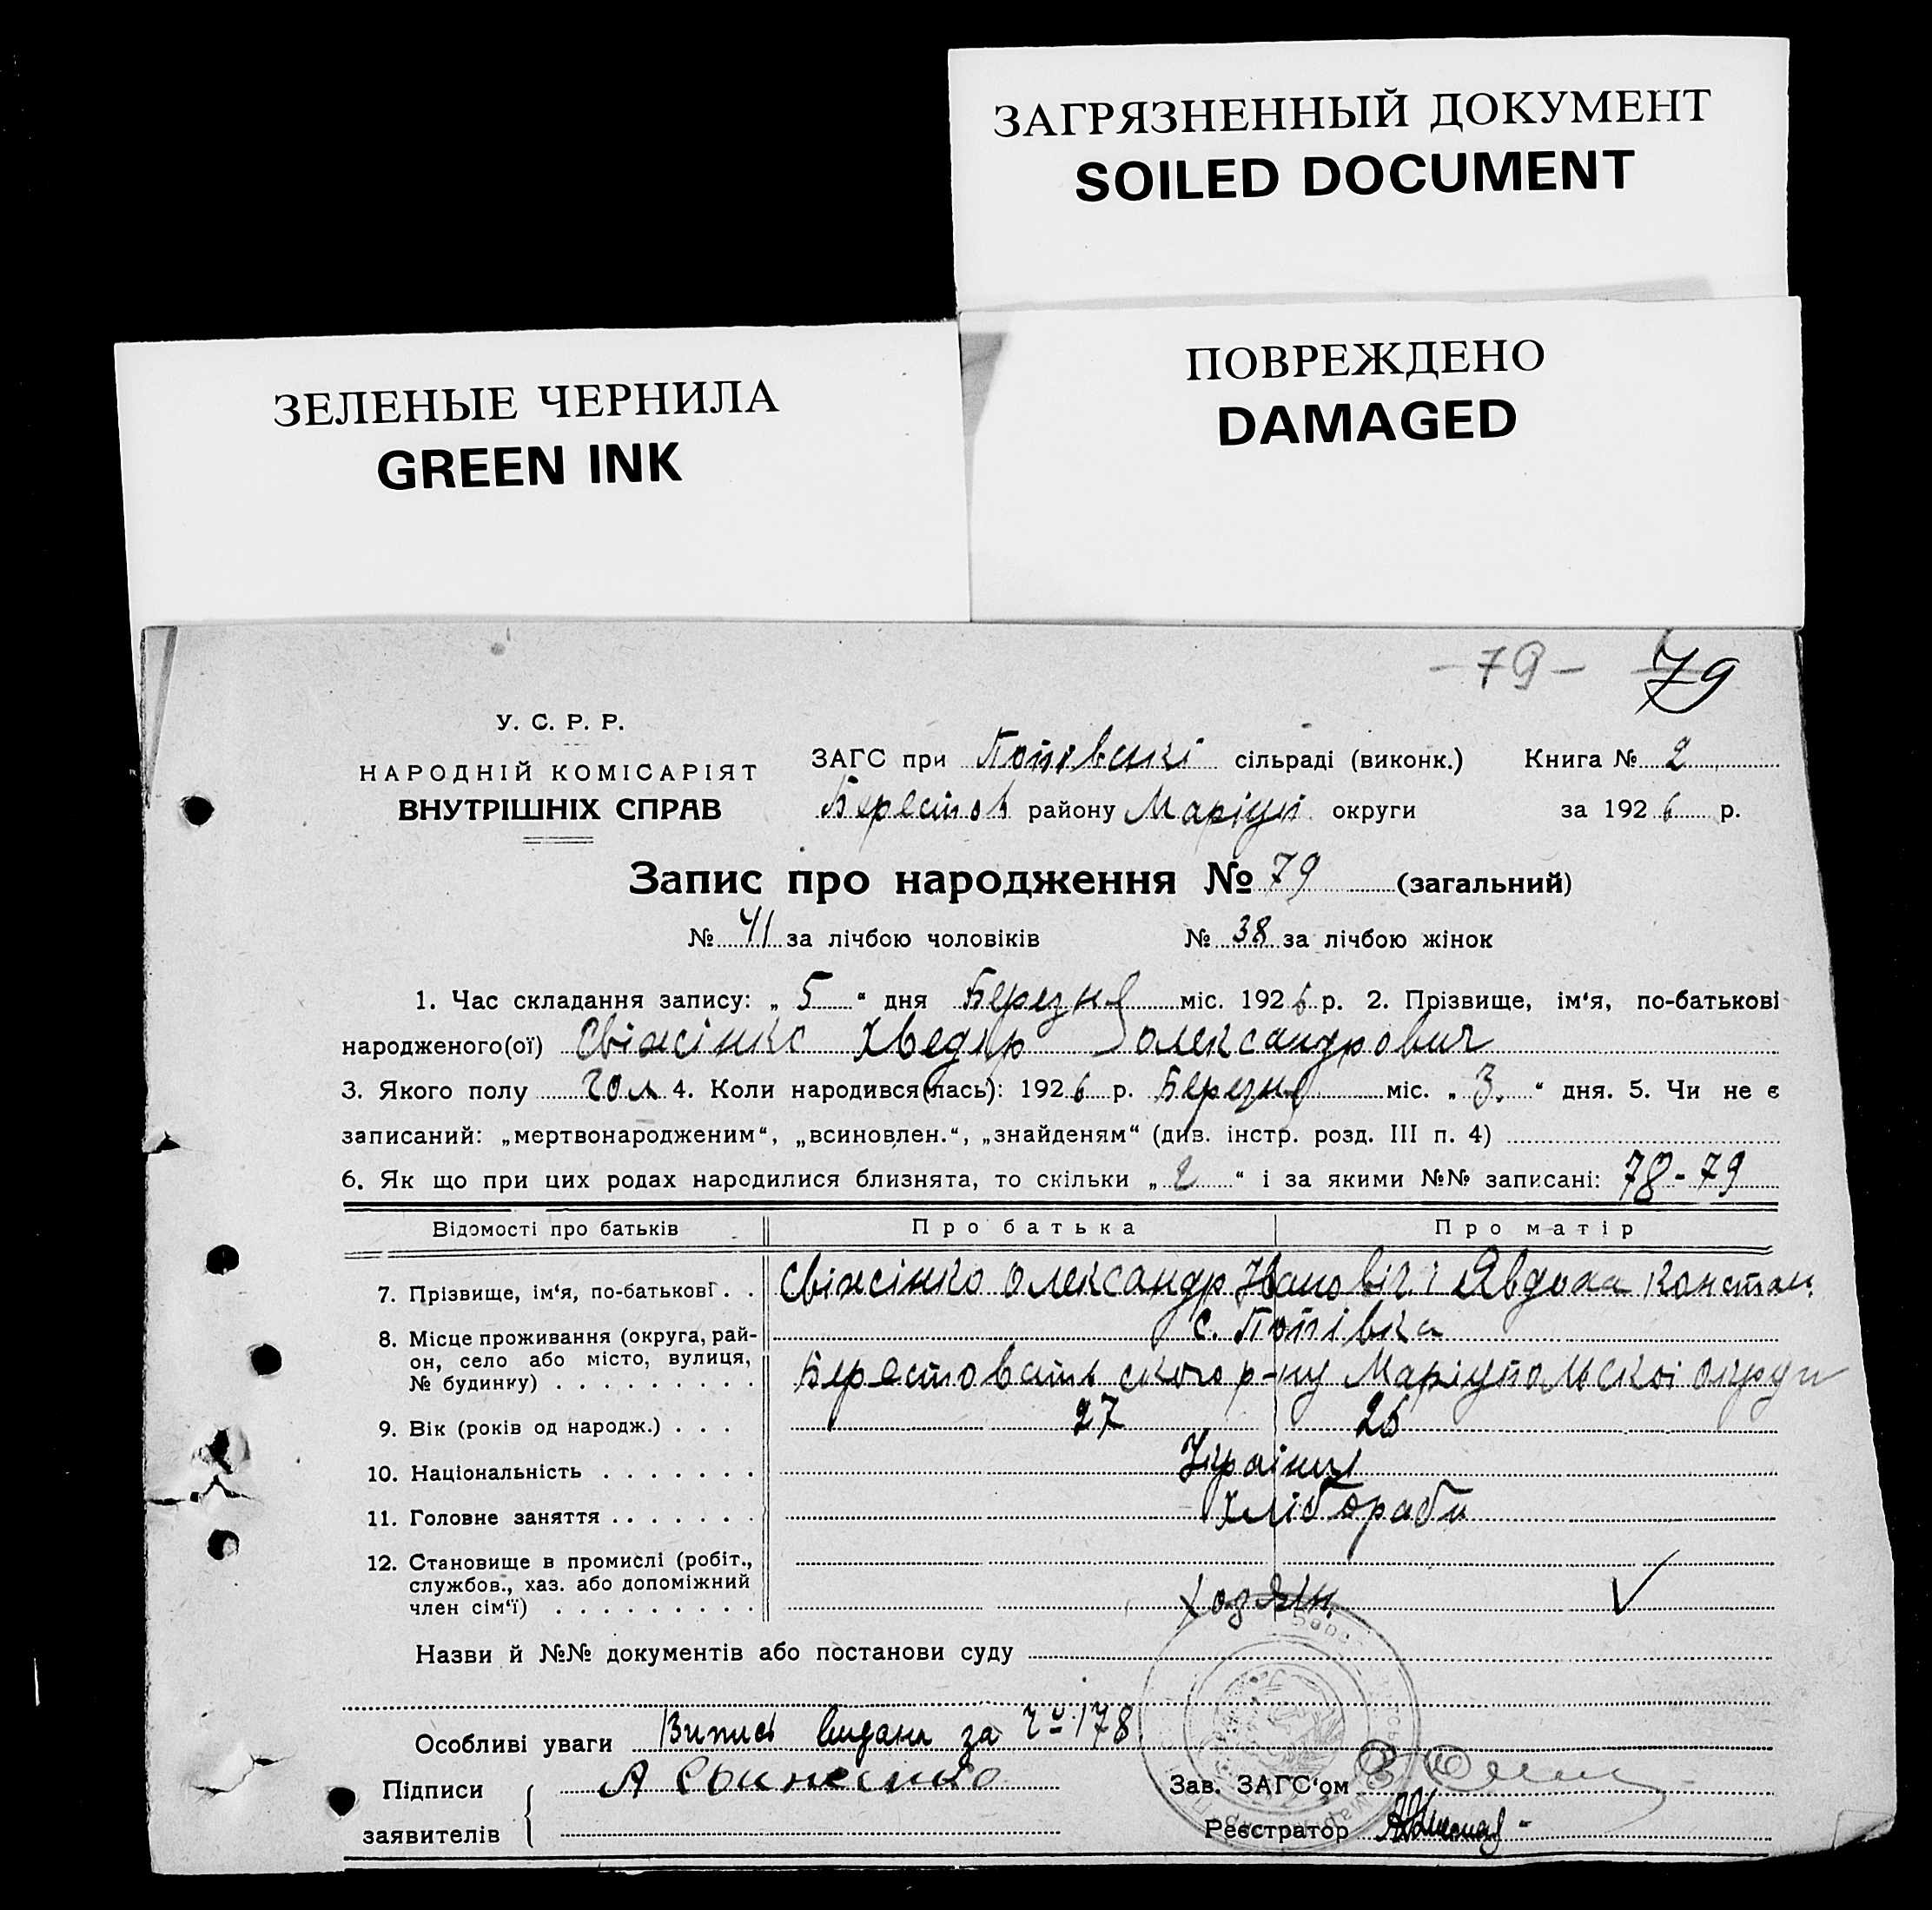 ЗАГРЯЗНЕННЫЙ ДОКУМЕНТ
SOILED DOCUMENT
ПОВРЕЖДЕНО
DAMAGED
ЗЕЛЕНЫЕ ЧЕРНИЛА
GREEN INK
-79- 79
У. С. Р. Р.
НАРОДНІЙ КОМІСАРІЯТ
ВНУТРІШНІХ СПРАВ
ЗАГС при Попівскі сільраді (виконк.) Книга № 2
Берестов району Маріуп. округи за 1926 р.
Запис про народження № 79 (загальний)
№ 41 за лічбою чоловіків № 38 за лічбою жінок
1. Час складання запису: „ 5 “ дня Березня міс. 1926 р. 2. Прізвище, ім‘я, по-батькові
народженого(ої) Свіженко Хведір Олександрович
3. Якого полу чол 4. Коли народився(лась): 1926 р. Березня міс. „ 3. “ дня. 5. Чи не є
записаний: „мертвонародженим“, „всиновлен.“, „знайденям“ (див. інстр. розд. III п. 4)
6. Як що при цих родах народилися близнята, то скільки „ 2 “ і за якими №№ записані: 78-79
Відомості про батьків Про батька Про матір
7. Прізвище, ім‘я, по-батькові . . Олександр Явдоха Констан.
8. Місце проживання (округа, рай-
он, село або місто, вулиця,
№ будинку) . . . . . . . . .
с. Попівка
Берестоватьского р-ну Маріупольскоі округи
9. Вік (років од народж.) . . . 27 25
10. Національність . . . . . . . Украінці
11. Головне заняття . . . . . . . Хлібороби
12. Становище в промислі (робіт.,
службов., хаз. або допоміжний
член сім‘ї) . . . . . . . . .
Хозяін.
Назви й №№ документів або постанови суду
Особливі уваги Випись видана за № 178
Підписи
заявителів
Зав. ЗАГС‘ом
Реєстратор